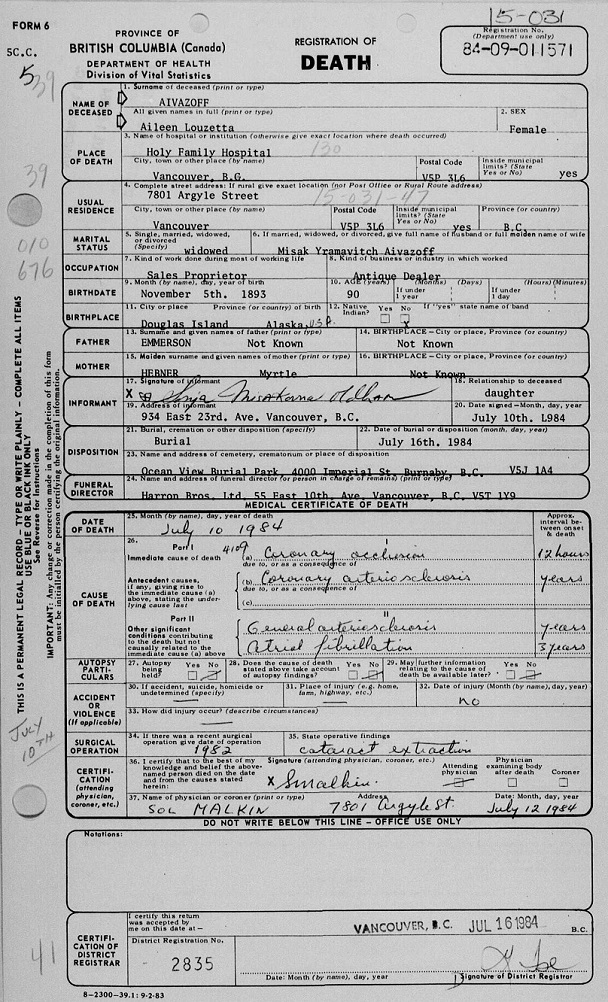 FORM 6
SC.C.
5
39
PROVINCE OF
BRITISH COLUMBIA (Canada)
DEPARTMENT OF HEALTH
Division of Vital Statistics
REGISTRATION OF
DEATH
15-031
Registration No.
(Department use only)
84-09-011571
NAME OF DECEASED
1. Surname of deceased (print or type)
AIVAZOFF
All given names in full (print or type)
2. SEX
Aileen Louzetta
Female
PLACE OF DEATH
3. Name of hospital or institution (otherwise give exact location where death occurred)
Holy Family Hospital
130
City, town or other place (by name)
Postal Code
Inside municipal limits? (State Yes or No)
Vancouver, B.G.
V5P 3L6
yes
39
USUAL RESIDENCE
4. Complete street address: If rural give exact location (not Post Office or Rural Route address)
7801 Argyle Street
15-031-47
City, town or other place (by name)
Postal Code
Inside municipal limits? (State Yes or No)
Province (or country)
Vancouver
V5P 3L6
yes
B.C.
010
676
MARITAL STATUS
5. Single, married, widowed, or divorced (Specify)
widowed
6. If married, widowed, or divorced, give full name of husband or full maiden name of wife
Misak Yramavitch Aivazoff
OCCUPATION
7. Kind of work done during most of working life
8. Kind of business or industry in which worked
Sales Proprietor
Antique Dealer
BIRTHDATE
9. Month (by name), day, year of birth
10. AGE (years)
(Months) (Days)
(Hours) (Minutes)
November 5th. 1893
90
If under 1 year
If under 1 day
BIRTHPLACE
11. City or place
Province (or country) of birth
12. Native Indian?
Yes No
If "yes" state name of band
Douglas Island
Alaska, U.S.A.
FATHER
13. Surname and given names of father (print or type)
14. BIRTHPLACE – City or place, Province (or country)
EMMERSON
Not Known
Not Known
MOTHER
15. Maiden surname and given names of mother (print or type)
16. BIRTHPLACE – City or place, Province (or country)
HEBNER
Myrtle
Not Known
INFORMANT
17. Signature of informant
18. Relationship to deceased
X
Oldham
daughter
19. Address of informant
20. Date signed – Month, day, year
934 East 23rd. Ave. Vancouver, B.C.
July 10th. L984
DISPOSITION
21. Burial, cremation or other disposition (specify)
22. Date of burial or disposition (month, day, year)
Burial
July 16th. 1984
23. Name and address of cemetery, crematorium or place of disposition
Ocean View Burial Park, 4000 Imperial St. Burnaby, B.C. V5J 1A4
FUNERAL DIRECTOR
24. Name and address of funeral director (or person in charge of remains) (print or type)
Harron Bros. Ltd. 55 East 10th. Ave. Vancouver, B.C. V5T 1Y9
MEDICAL CERTIFICATE OF DEATH
DATE OF DEATH
25. Month (by name), day, year of death
July 10 1984
Approx. interval between onset & death
CAUSE OF DEATH
26.
Part I
4109
I
Immediate cause of death
(a) Coronary occlusion
12 hours
due to, or as a consequence of
Antecedent causes, if any, giving rise to the immediate cause (a) above, stating the underlying cause last
(b) Coronary arteriosclerosis
years
due to, or as a consequence of
(c)
Part II
II
Other significant conditions contributing to the death but not causally related to the immediate cause (a) above
General arteriosclerosis
years
Atrial fibrillation
3 years
AUTOPSY PARTICULARS
27. Autopsy being held?
Yes No
28. Does the cause of death stated above take account of autopsy findings?
Yes No
29. May further information relating to the cause of death be available later?
Yes No
ACCIDENT OR VIOLENCE (If applicable)
30. If accident, suicide, homicide or undetermined (specify)
31. Place of injury (e.g. home, farm, highway, etc.)
32. Date of injury (Month (by name), day, year)
no
33. How did injury occur? (describe circumstances)
SURGICAL OPERATION
34. If there was a recent surgical operation give date of operation
1982
35. State operative findings
cataract extraction
CERTIFICATION (attending physician, coroner, etc.)
36. I certify that to the best of my knowledge and belief the above-named person died on the date and from the causes stated herein:
Signature (attending physician, coroner, etc.)
X SMalkin
Attending physician
Physician examining body after death
Coroner
37. Name of physician or coroner (print or type)
Address
Date: Month, day, year
SOL MALKIN
7801 Argyle St.
July 12 1984
DO NOT WRITE BELOW THIS LINE – OFFICE USE ONLY
Notations:
CERTIFICATION OF DISTRICT REGISTRAR
I certify this return was accepted by me on this date at –
VANCOUVER, B.C. JUL 16 1984
B.C.
District Registration No.
2835
Date: Month (by name), day, year
Signature of District Registrar
8-2300-39.1: 9-2-83
THIS IS A PERMANENT LEGAL RECORD – TYPE OR WRITE PLAINLY – COMPLETE ALL ITEMS
USE BLUE OR BLACK INK ONLY
See Reverse for Instructions
IMPORTANT: Any change or correction made in the completion of this form must be initialled by the person certifying the original information.
JULY
10TH
41